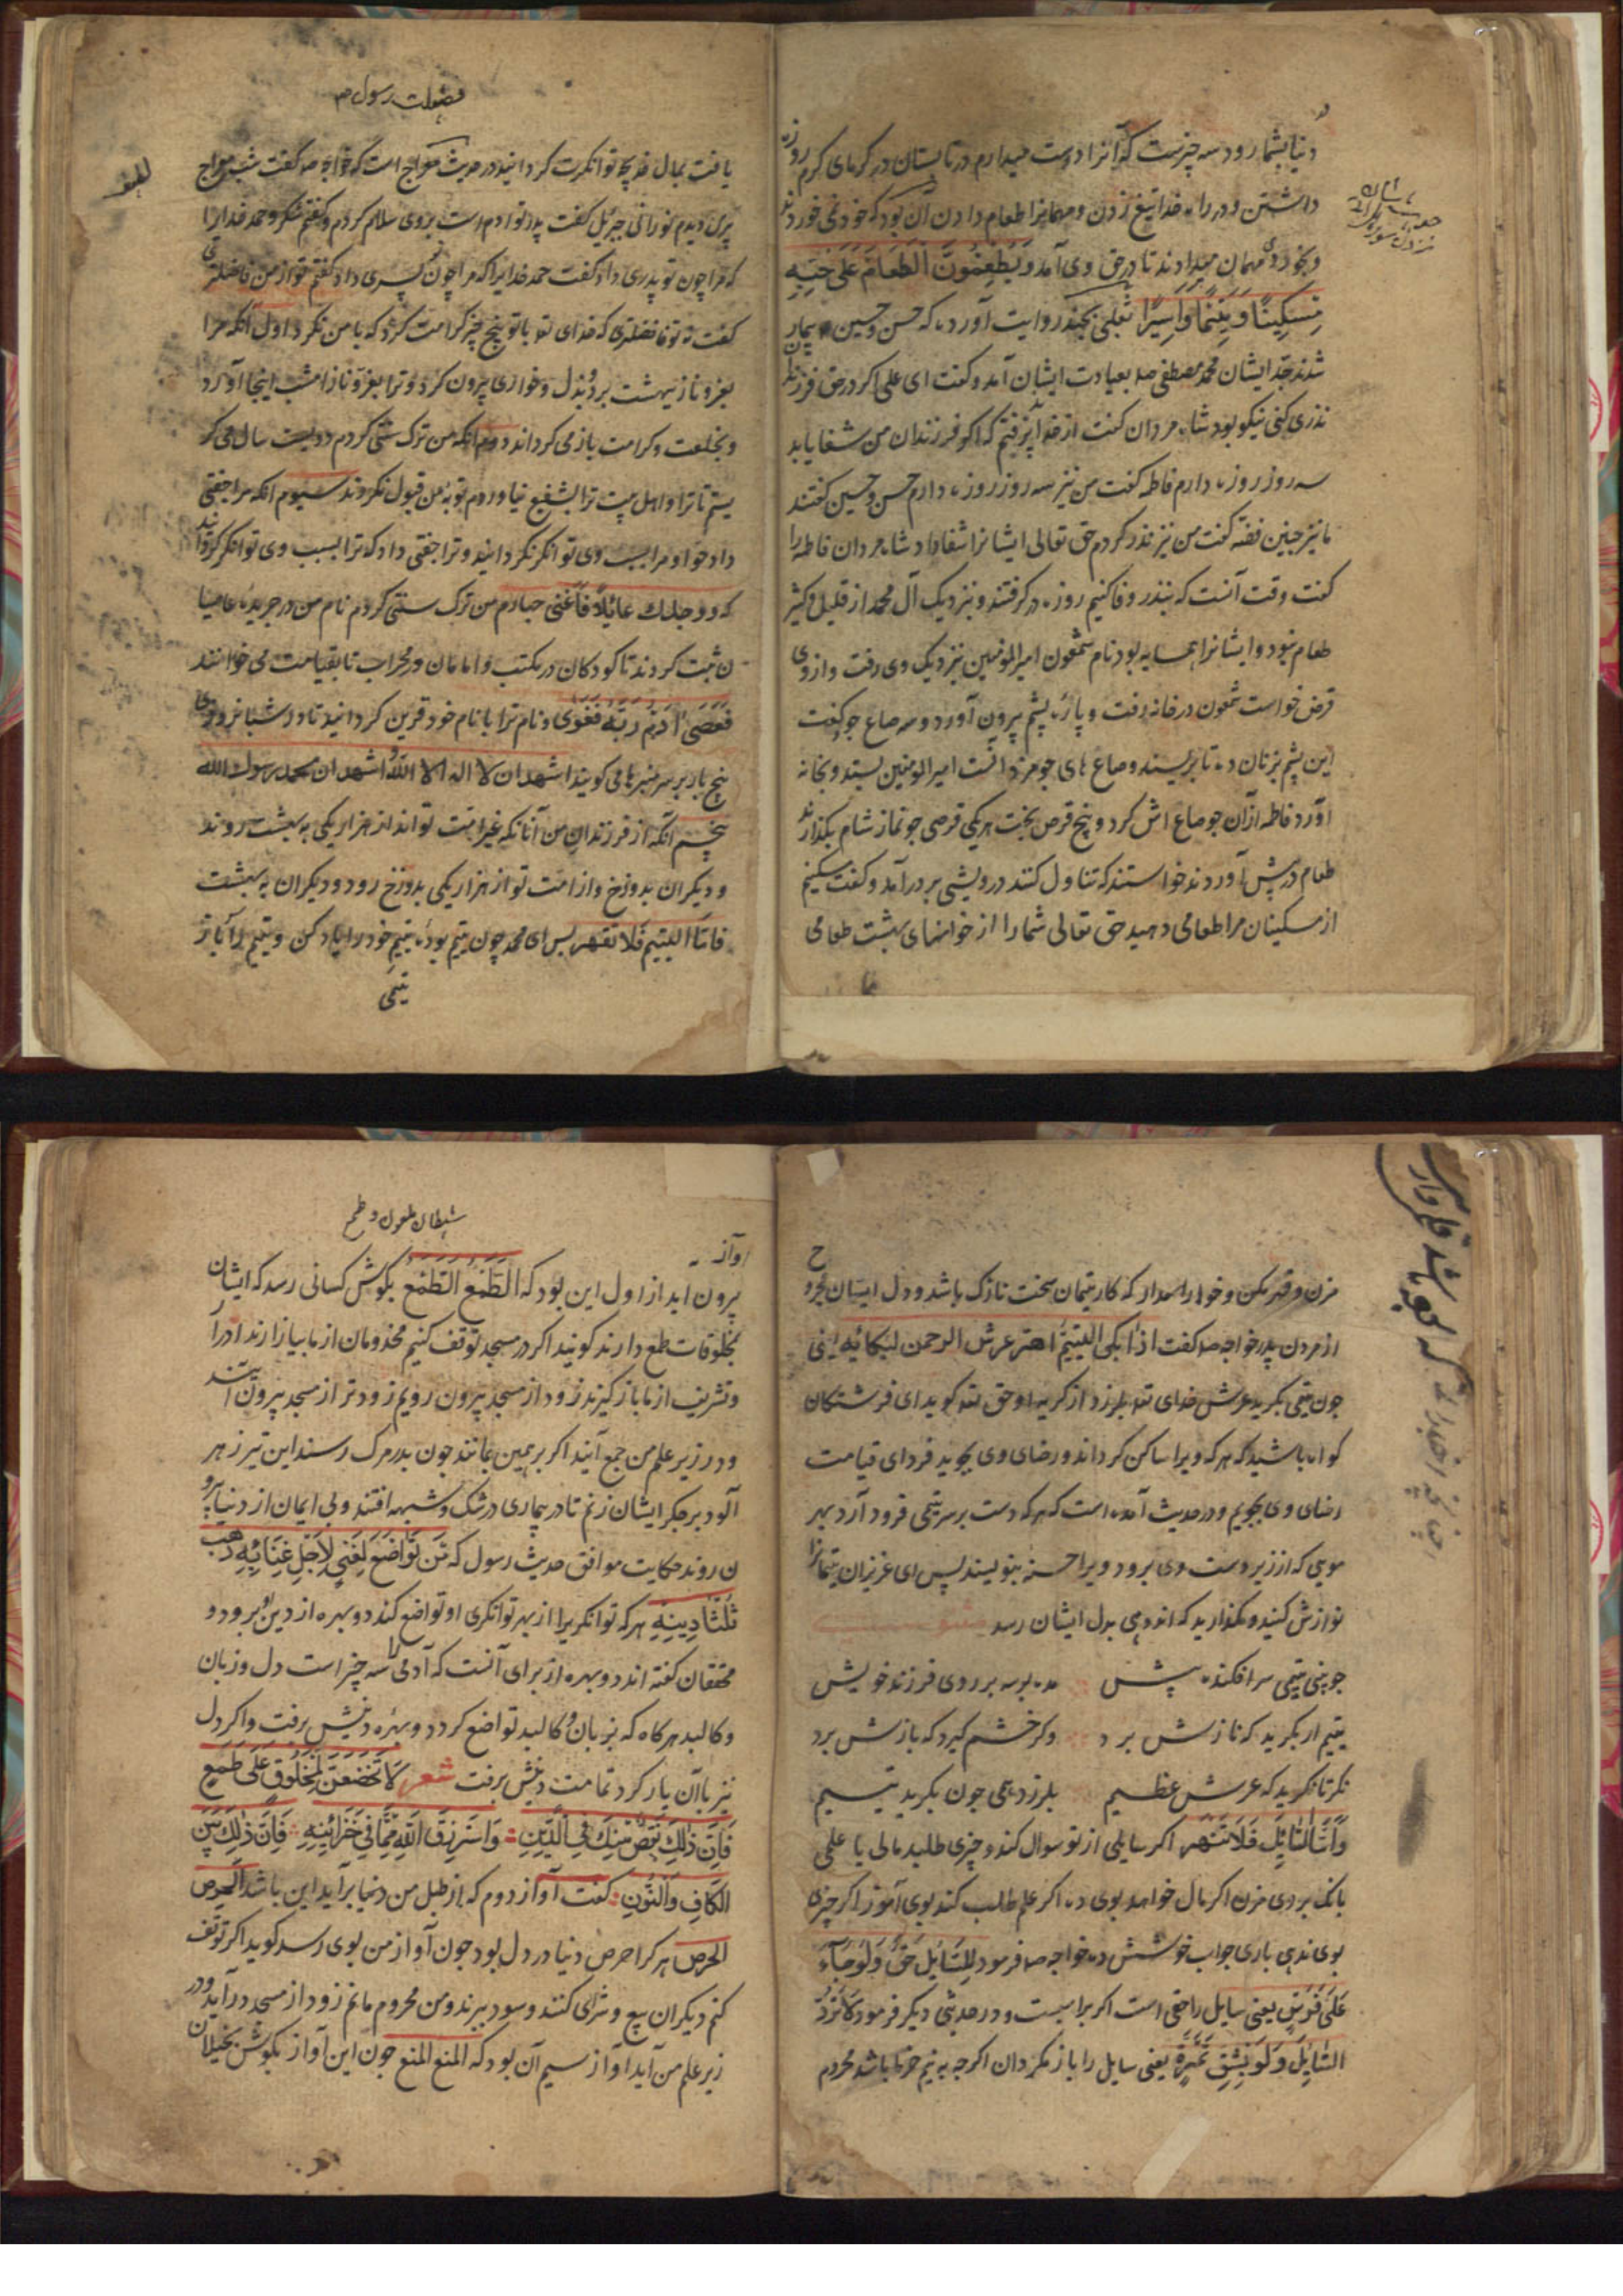 دنیا بشما رود سه چیزست که آنرا دوست میدارم در تابستان در گرمای گرم روزه
داشتن و در راه خدا تیغ زدن و مهمانرا طعام دادن آن بود که خود نمی خوردند
و بخورد مهمان میدادند تا در حق وی آمد وَیُطْعِمُونَ الطَّعَامَ عَلَی حُبِّهِ
مِسْکِینًا وَیَتِیمًا وَاَسِیرًا ثعلبی بچند روایت آورده که حسن و حسین بیمار
شدند جد ایشان محمد مصطفی صد بعیادت ایشان آمد و گفت ای علی اگر در حق فرزندان
نذری کنی نیکو بود شاه مردان گفت از خدا پذیرفتم که اگر فرزندان من شفا یابد
سه روز روزه دارم فاطمه گفت من نیز سه روز روزه دارم حسن و حسین گفتند
ما نیز چنین فضه گفت من نیز نذر کردم حق تعالی ایشانرا شفا داد شاه مردان فاطمه را
گفت وقت آنست که بنذر وفا کنیم روزه در گرفتند و بنزدیک آل محمد از قلیل و کثیر
طعام نبود و ایشانرا همسایه بود نام شمعون امیرالمومنین بنزدیک وی رفت و از وی
قرض خواست شمعون در خانه رفت و پاره پشم بیرون آورد و سه صاع جو گفت
این پشم بزنان ده تا بریسند و صاع های جو مزد آنست امیرالمومنین بستد و بخانه
آورد فاطمه از آن جو صاع اش کرد و پنج قرص بپخت هر یکی قرصی چو نماز شام بگذاردند
طعام در پیش آوردند خواستند که تناول کنند درویشی بر در آمد و گفت مسکینم
از مسکینان مرا طعامی دهید حق تعالی شما را از خوانهای بهشت طعامی
فضیلت رسول ص
یافت بمال خدیجه توانگرت گردانید در حدیث معراج است که خواجه صه گفت شب معراج
پری دیدم نورانی جبرئیل گفت پدر تو آدم است بروی سلام کردم و گفتم شکر و حمد خدا را
که مرا چون تو پدری داد گفت حمد خدایرا که مرا چون تو پسری داد گفتم تو از من فاضلتری
گفت نه تو فاضلتری که خدای تعه با تو پنج چیز کرامت کرد که با من نکرد اول آنکه مرا
بعز و ناز ببهشت برد و بذل و خواری بیرون کرد و ترا بعز و ناز امشب اینجا آورد
و بخلعت و کرامت باز می گرداند دوم آنکه من ترک سنتی کردم دویست سال می گر
یستم تا ترا و اهل بیت ترا بشفیع نیاوردم توبه من قبول نکردند سیوم آنکه مرا جفتی
داد حوا و مرا بسبب وی توانگر نگردانید و ترا جفتی داد که ترا بسبب وی توانگر گردانید
که ووجدک عائلاً فاغنی چهارم من ترک سنتی کردم نام من در جریده عاصیا
ن ثبت کردند تا کودکان در مکتب و امامان در محراب تا بقیامت می خوانند
فَعَصَی آدَمُ رَبَّهُ فَغَوَی و نام ترا با نام خود قرین گردانید تا در شبانروزی
پنج بار بر سر منبرها می گویند اشهد ان لا اله الا الله اشهد ان محمد رسول الله
پنجم آنکه از فرزندان من آنانکه غیر امت تو اند از هزار یکی به بهشت روند
و دیگران بدوزخ و از امت تو از هزار یکی بدوزخ رود و دیگران به بهشت
فاما الیتیم فلا تقهر پس ای محمد چون یتیم بوده یتیم خود را یاد کن و یتیم را
یتیمی
مزن و قهر مکن و خوار مدار که کار یتیمان سخت نازک باشد و دل ایشان مجرو
ح
از مردن پدر خواجه صه گفت اذا بکی الیتیم اهتز عرش الرحمن لبکائه یعنی
چون یتیمی بگرید عرش خدای تعه بلرزد از گریه او حق تعه گوید ای فرشتگان
گواه باشید که هر که ویرا ساکن گرداند و رضای وی بجوید فردای قیامت
رضای وی بجویم و در حدیث آمده است که هر که دست بر سر یتیمی فرود آرد بهر
مویی که از زیر دست وی برود ویرا حسنه بنویسند پس ای عزیزان یتیمانرا
نوازش کنید و مگذارید که اندوهی بدل ایشان رسد مثنوی
چو بینی یتیمی سر افکنده پیش مده بوسه بر روی فرزند خویش
یتیم ار بگرید که نازش برد وگر خشم گیرد که بازش برد
نگر تا نگرید که عرش عظیم بلرزد همی چون بگرید یتیم
وَاَمَّا السَّائِلَ فَلَا تَنْهَر اگر سایلی از تو سوال کند و چیزی طلبد مالی یا علمی
بانک بر وی مزن اگر مال خواهد بوی ده اگر علم طلب کند بوی آموز اگر چیزی
بوی ندهی باری جواب خوشش ده خواجه صه فرمود لِلسَّائِلِ حَقٌّ وَلَوْ جَاءَ
عَلَی فَرَسٍ یعنی سایل را حقی است اگر بر اسبست و در حدیثی دیگر فرمود لَا تَرُدُّ
السَّائِلَ وَلَوْ بِشِقِّ تَمْرَةٍ یعنی سایل را باز مگردان اگرچه به نیم خرما باشد محروم
شیطان ملعون و طمع
آواز
بیرون آید از اول این بود که الطَّمَع الطَّمَع بگوش کسانی رسد که ایشان
بمخلوقات طمع دارند گویند اگر در مسجد توقف کنیم مخدومان از ما بیازارند ادرار
و تشریف از ما باز گیرند زود از مسجد بیرون رویم زودتر از مسجد بیرون آیند
و در زیر علم من جمع آیند اگر برهمین بمانند چون بدر مرگ رسند این تیر زهر
آلود بر جگر ایشان زنم تا در بیماری در شک و شبهه افتند و بی ایمان از دنیا بیرو
ن روند حکایت موافق حدیث رسول که مَنْ تَوَاضَعَ لِغَنِیٍّ لِاَجْلِ غِنَائِهِ ذَهَبَ
ثُلُثَا دِینِهِ هر که توانگریرا از بهر توانگری او تواضع کند دو بهره از دین او برود و
محققان گفته اند دو بهره از برای آنست که آدمی را سه چیز است دل و زبان
و کالبد هرگاه که بزبان و کالبد تواضع کرد دو بهره دینش برفت و اگر دل
نیز با آن یار کرد تمامت دینش برفت شعر لَا تَخْضَعَنَّ لِمَخْلُوقٍ عَلَی طَمَعٍ
فَاِنَّ ذَلِکَ نَقْصٌ مِنْکَ فِی الدِّینِ وَاسْتَرْزِقِ اللَّهَ مِمَّا فِی خَزَائِنِهِ فَاِنَّ ذَلِکَ بَیْنَ
الْکَافِ وَالنُّونِ گفت آواز دوم که از طبل من در دنیا برآید این باشد الحرص
الحرص هر کرا حرص دنیا در دل بود چون آواز من بوی رسد گوید اگر توقف
کنم دیگران بیع و شرای کنند و سود ببرند و من محروم مانم زود از مسجد درآید و در
زیر علم من آید آواز سیم آن بود که المنع المنع چون این آواز بگوش بخیلان